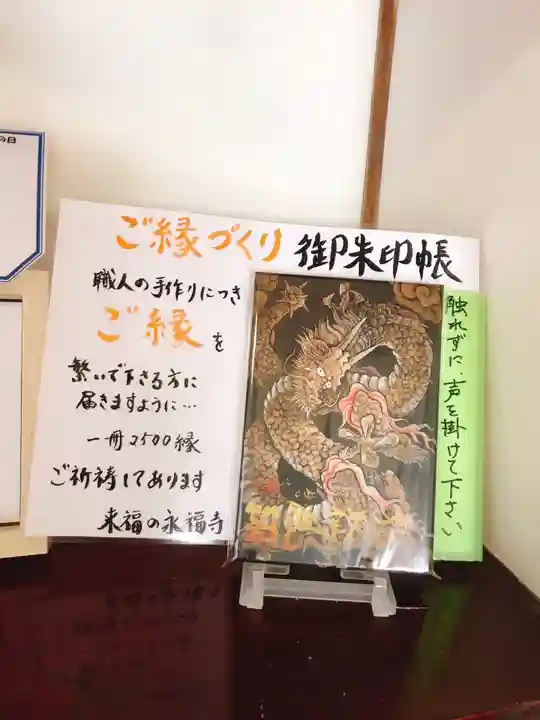 の日
ご縁づくり 御朱印帳
職人の手作りにつき
ご縁を
繋いで下さる方に
届きますように…
一冊2500縁
ご祈祷してあります
来福の永福寺
触れずに、声を掛けて下さい